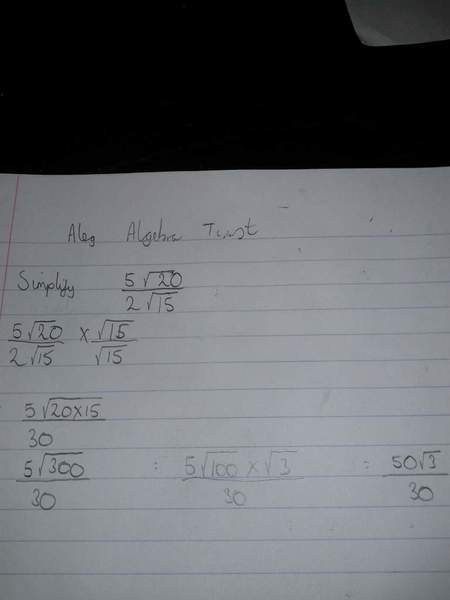 Alg Algebra Twist
Simplify 5√20 / 2√15
5√20 / 2√15 × √15 / √15
5√20×15 / 30
5√300 / 30 : 5√100 × √3 / 30 : 50√3 / 30